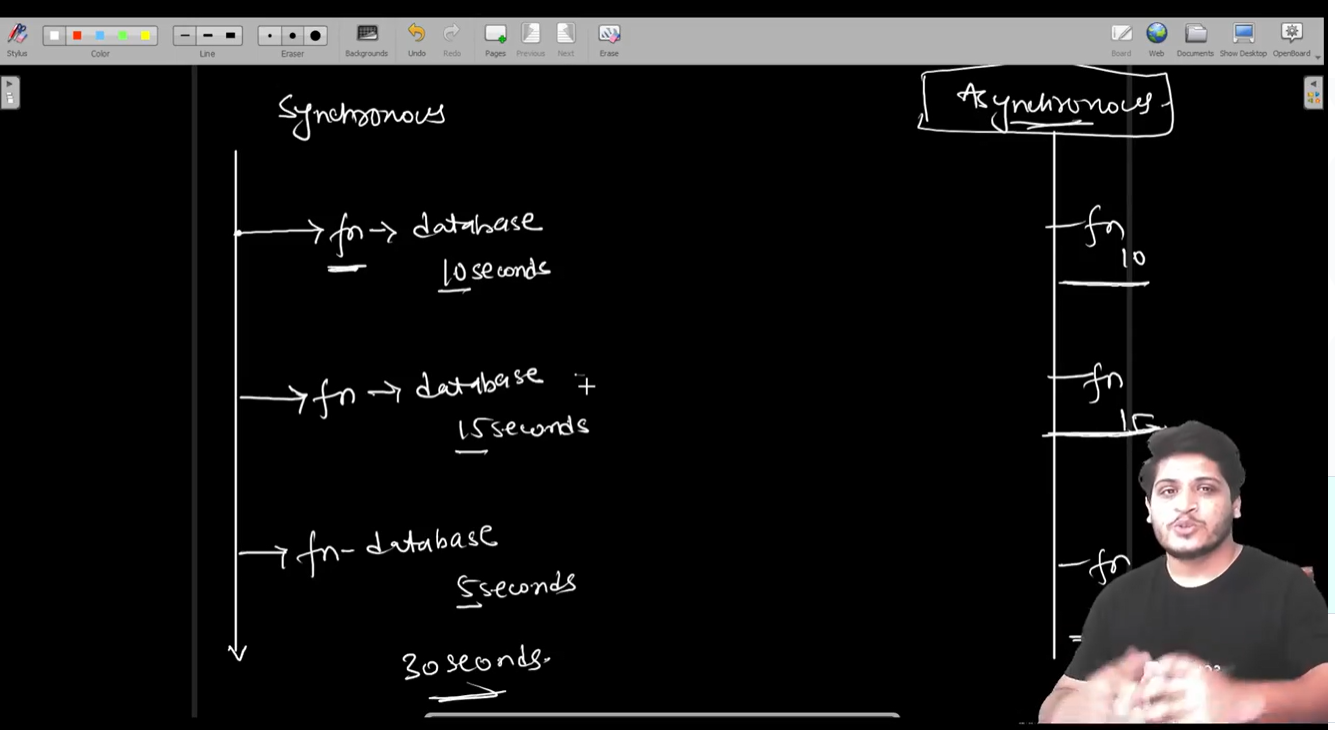 Stylus
Color
Line
Eraser
Backgrounds
Undo
Redo
Pages
Previous
Next
Erase
Board
Web
Documents
Show Desktop
OpenBoard
Synchronous
fn → database
10 seconds
fn → database +
15 seconds
fn - database
5 seconds
30 seconds.
Asynchronous
fn
10
fn
15
fn